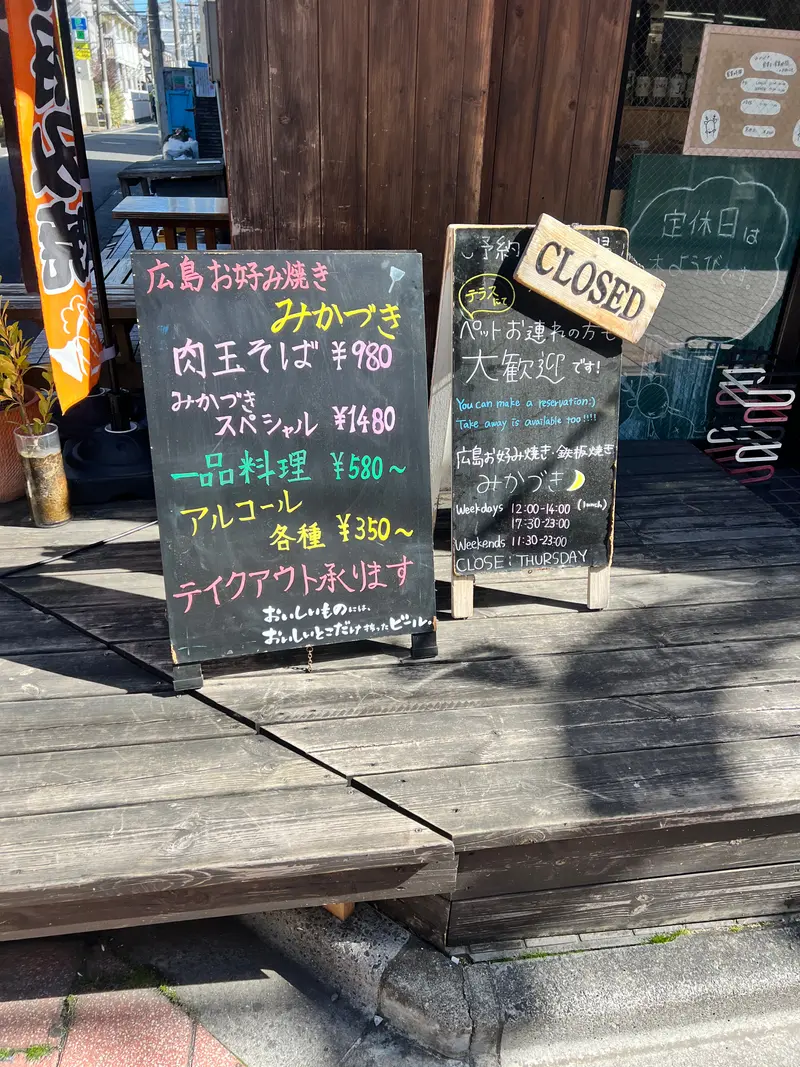 お好み焼
広島お好み焼き
みかづき
肉玉そば ¥980
みかづき
スペシャル ¥1480
一品料理 ¥580～
アルコール
各種 ¥350～
テイクアウト承ります
おいしいものには、
おいしいとこだけ搾ったビール。
予約
CLOSED
テラスにて
ペットお連れの方も
大歓迎です!
You can make a reservation:)
Take away is available too!!!!
広島お好み焼き・鉄板焼き
みかづき
Weekdays 12:00-14:00 (lunch)
17:30-23:00
Weekends 11:30-23:00
CLOSE: THURSDAY
定休日は
木ようびです。